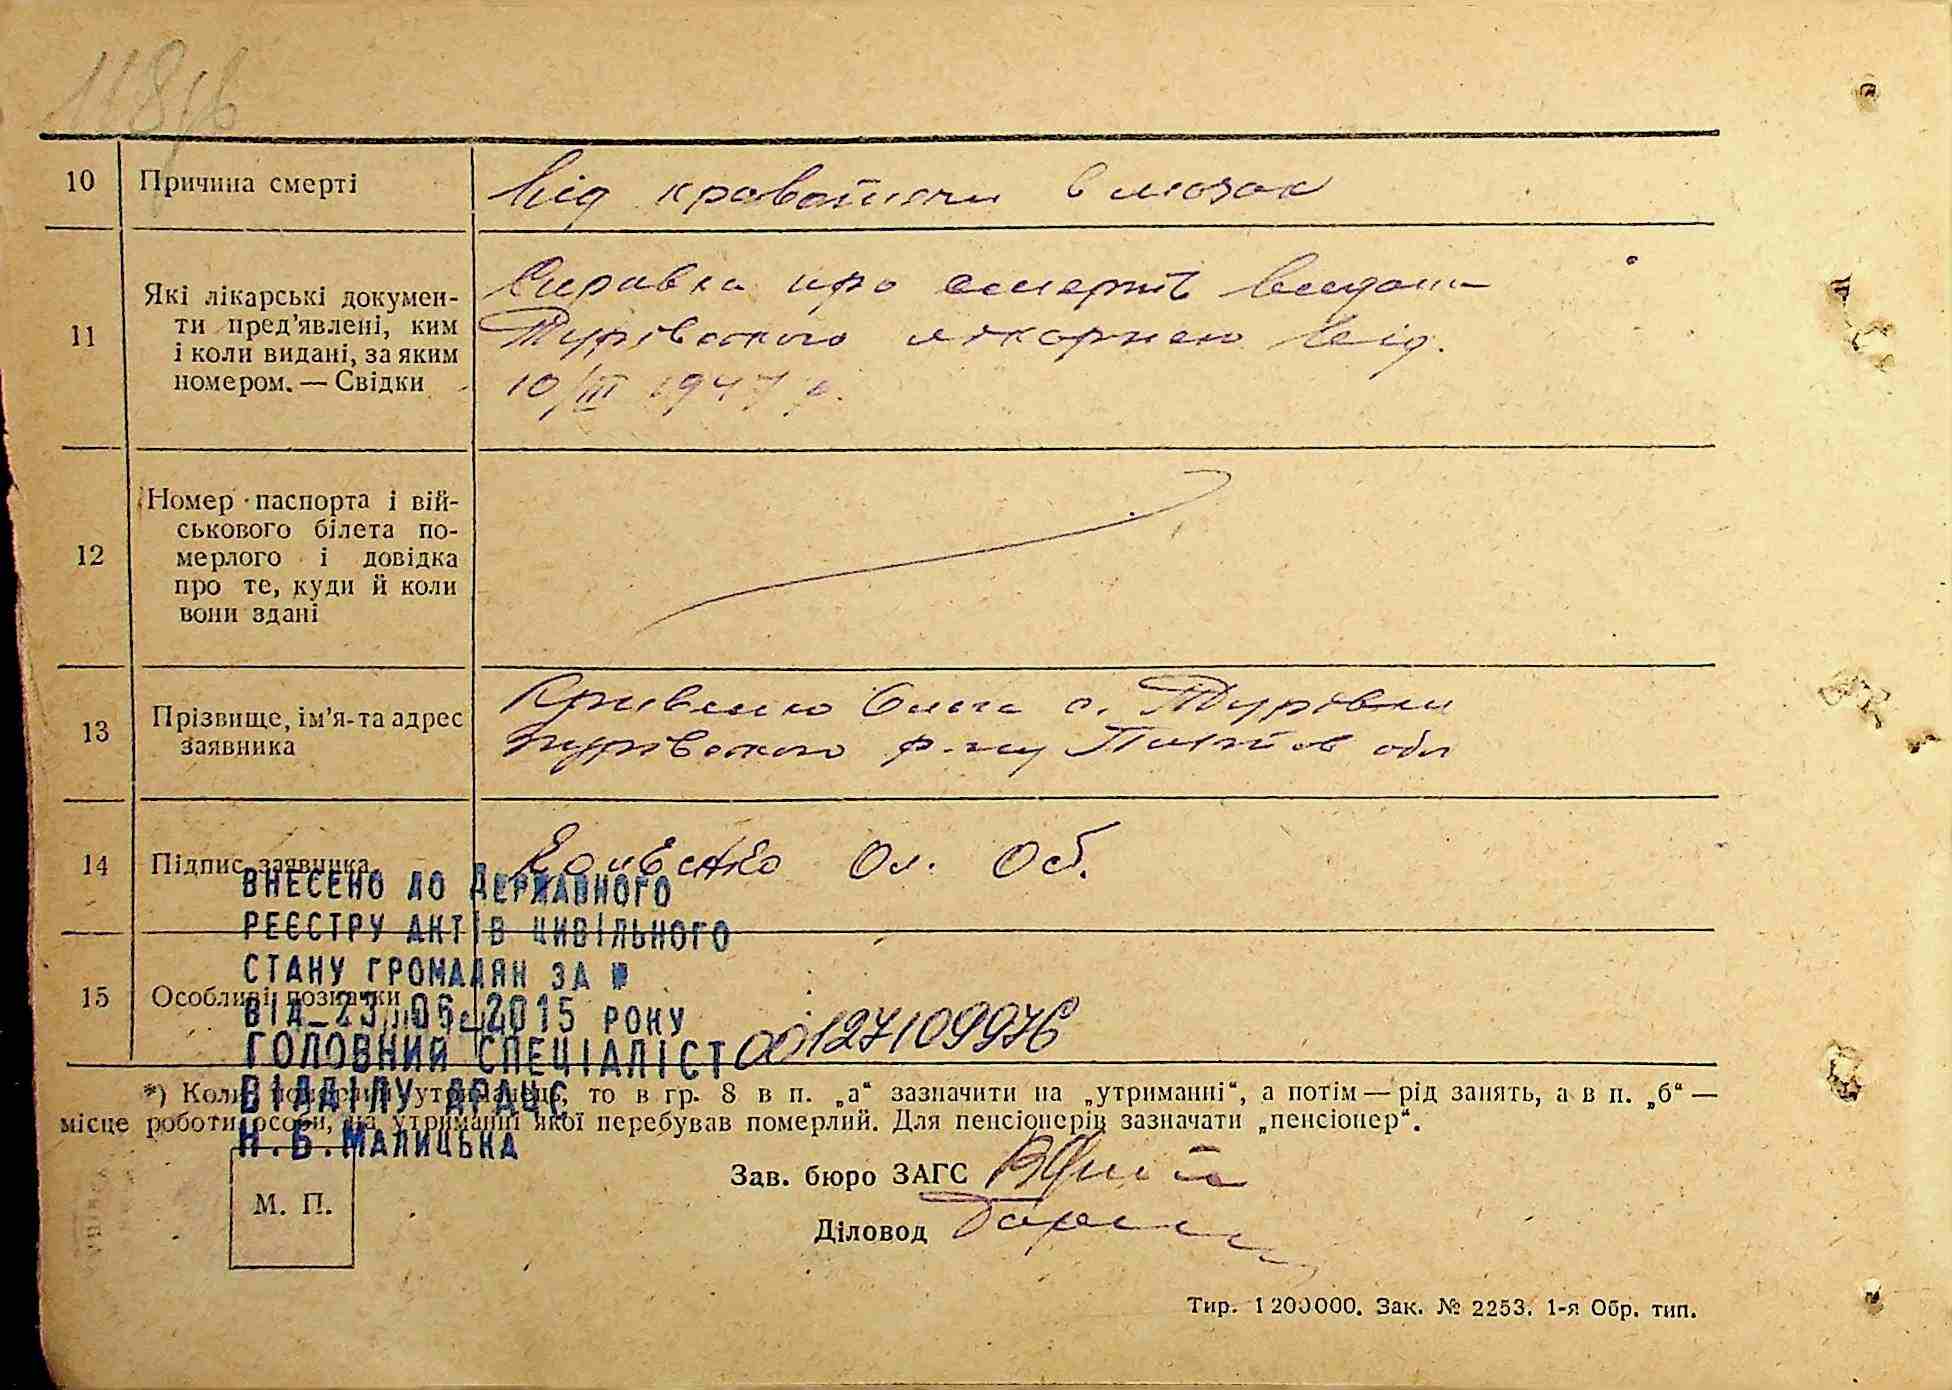 118
10 Причина смерті
Від кровотечи в мозок
11 Які лікарські докумен-
ти пред’явлені, ким
і коли видані, за яким
номером. — Свідки
Справка про смерть видана
Турівського лікарнею від.
10/III 1947 р.
12 Номер паспорта і вій-
ськового білета по-
мерлого і довідка
про те, куди й коли
вони здані
13 Прізвище, ім’я та адрес
заявника
Кривенко Ольга с. Турівки
Турівського р-ну Полтов обл
14 Підпис заявника
Ол. Об.
ВНЕСЕНО ДО ДЕРЖАВНОГО
РЕЄСТРУ АКТІВ ЦИВІЛЬНОГО
СТАНУ ГРОМАДЯН ЗА №
15 Особливі позначки
ВІД 23 06 2015 РОКУ
ГОЛОВНИЙ СПЕЦІАЛІСТ 00127109976
ВІДДІЛУ ДРАЦС
Н.Б.МАЛИЦЬКА
*) Коли померлий утриманець, то в гр. 8 в п. „а“ зазначити на „утриманні“, а потім — рід занять, а в п. „б“ —
місце роботи особи, на утриманні якої перебував померлий. Для пенсіонерів зазначати „пенсіонер“.
Зав. бюро ЗАГС
М. П.
Діловод
Тир. 1200000. Зак. № 2253. 1-я Обр. тип.